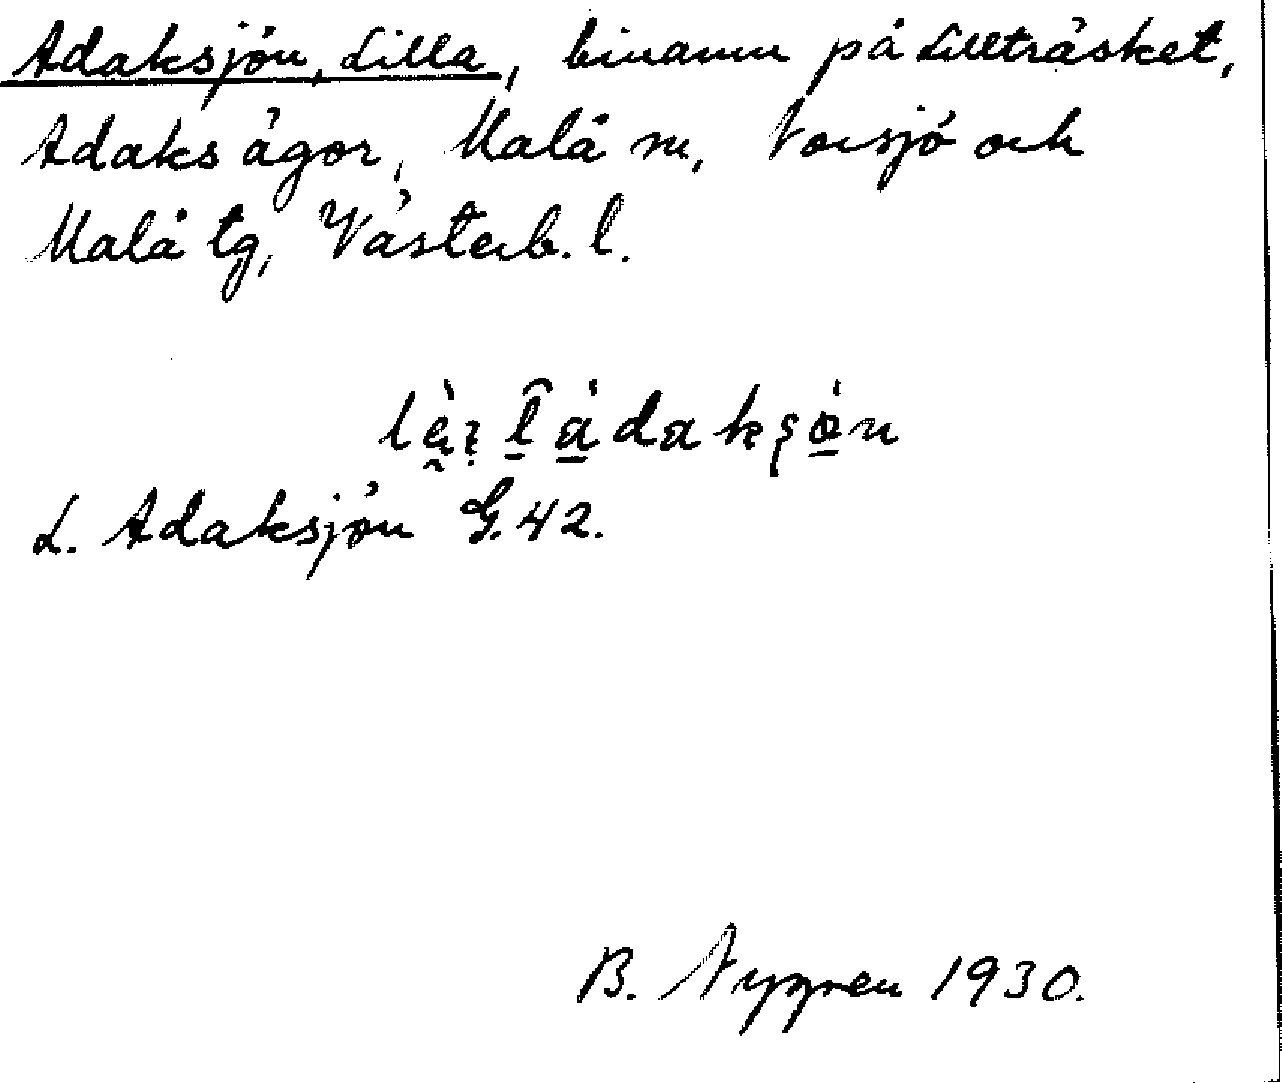 Adaksjön, Lilla, binamn på Lillträsket,
Adaks ägor, Malå sn, Norsjö och
Malå tg, Västerb. l.
L. Adaksjön G. 42.
B. Nygren 1930.